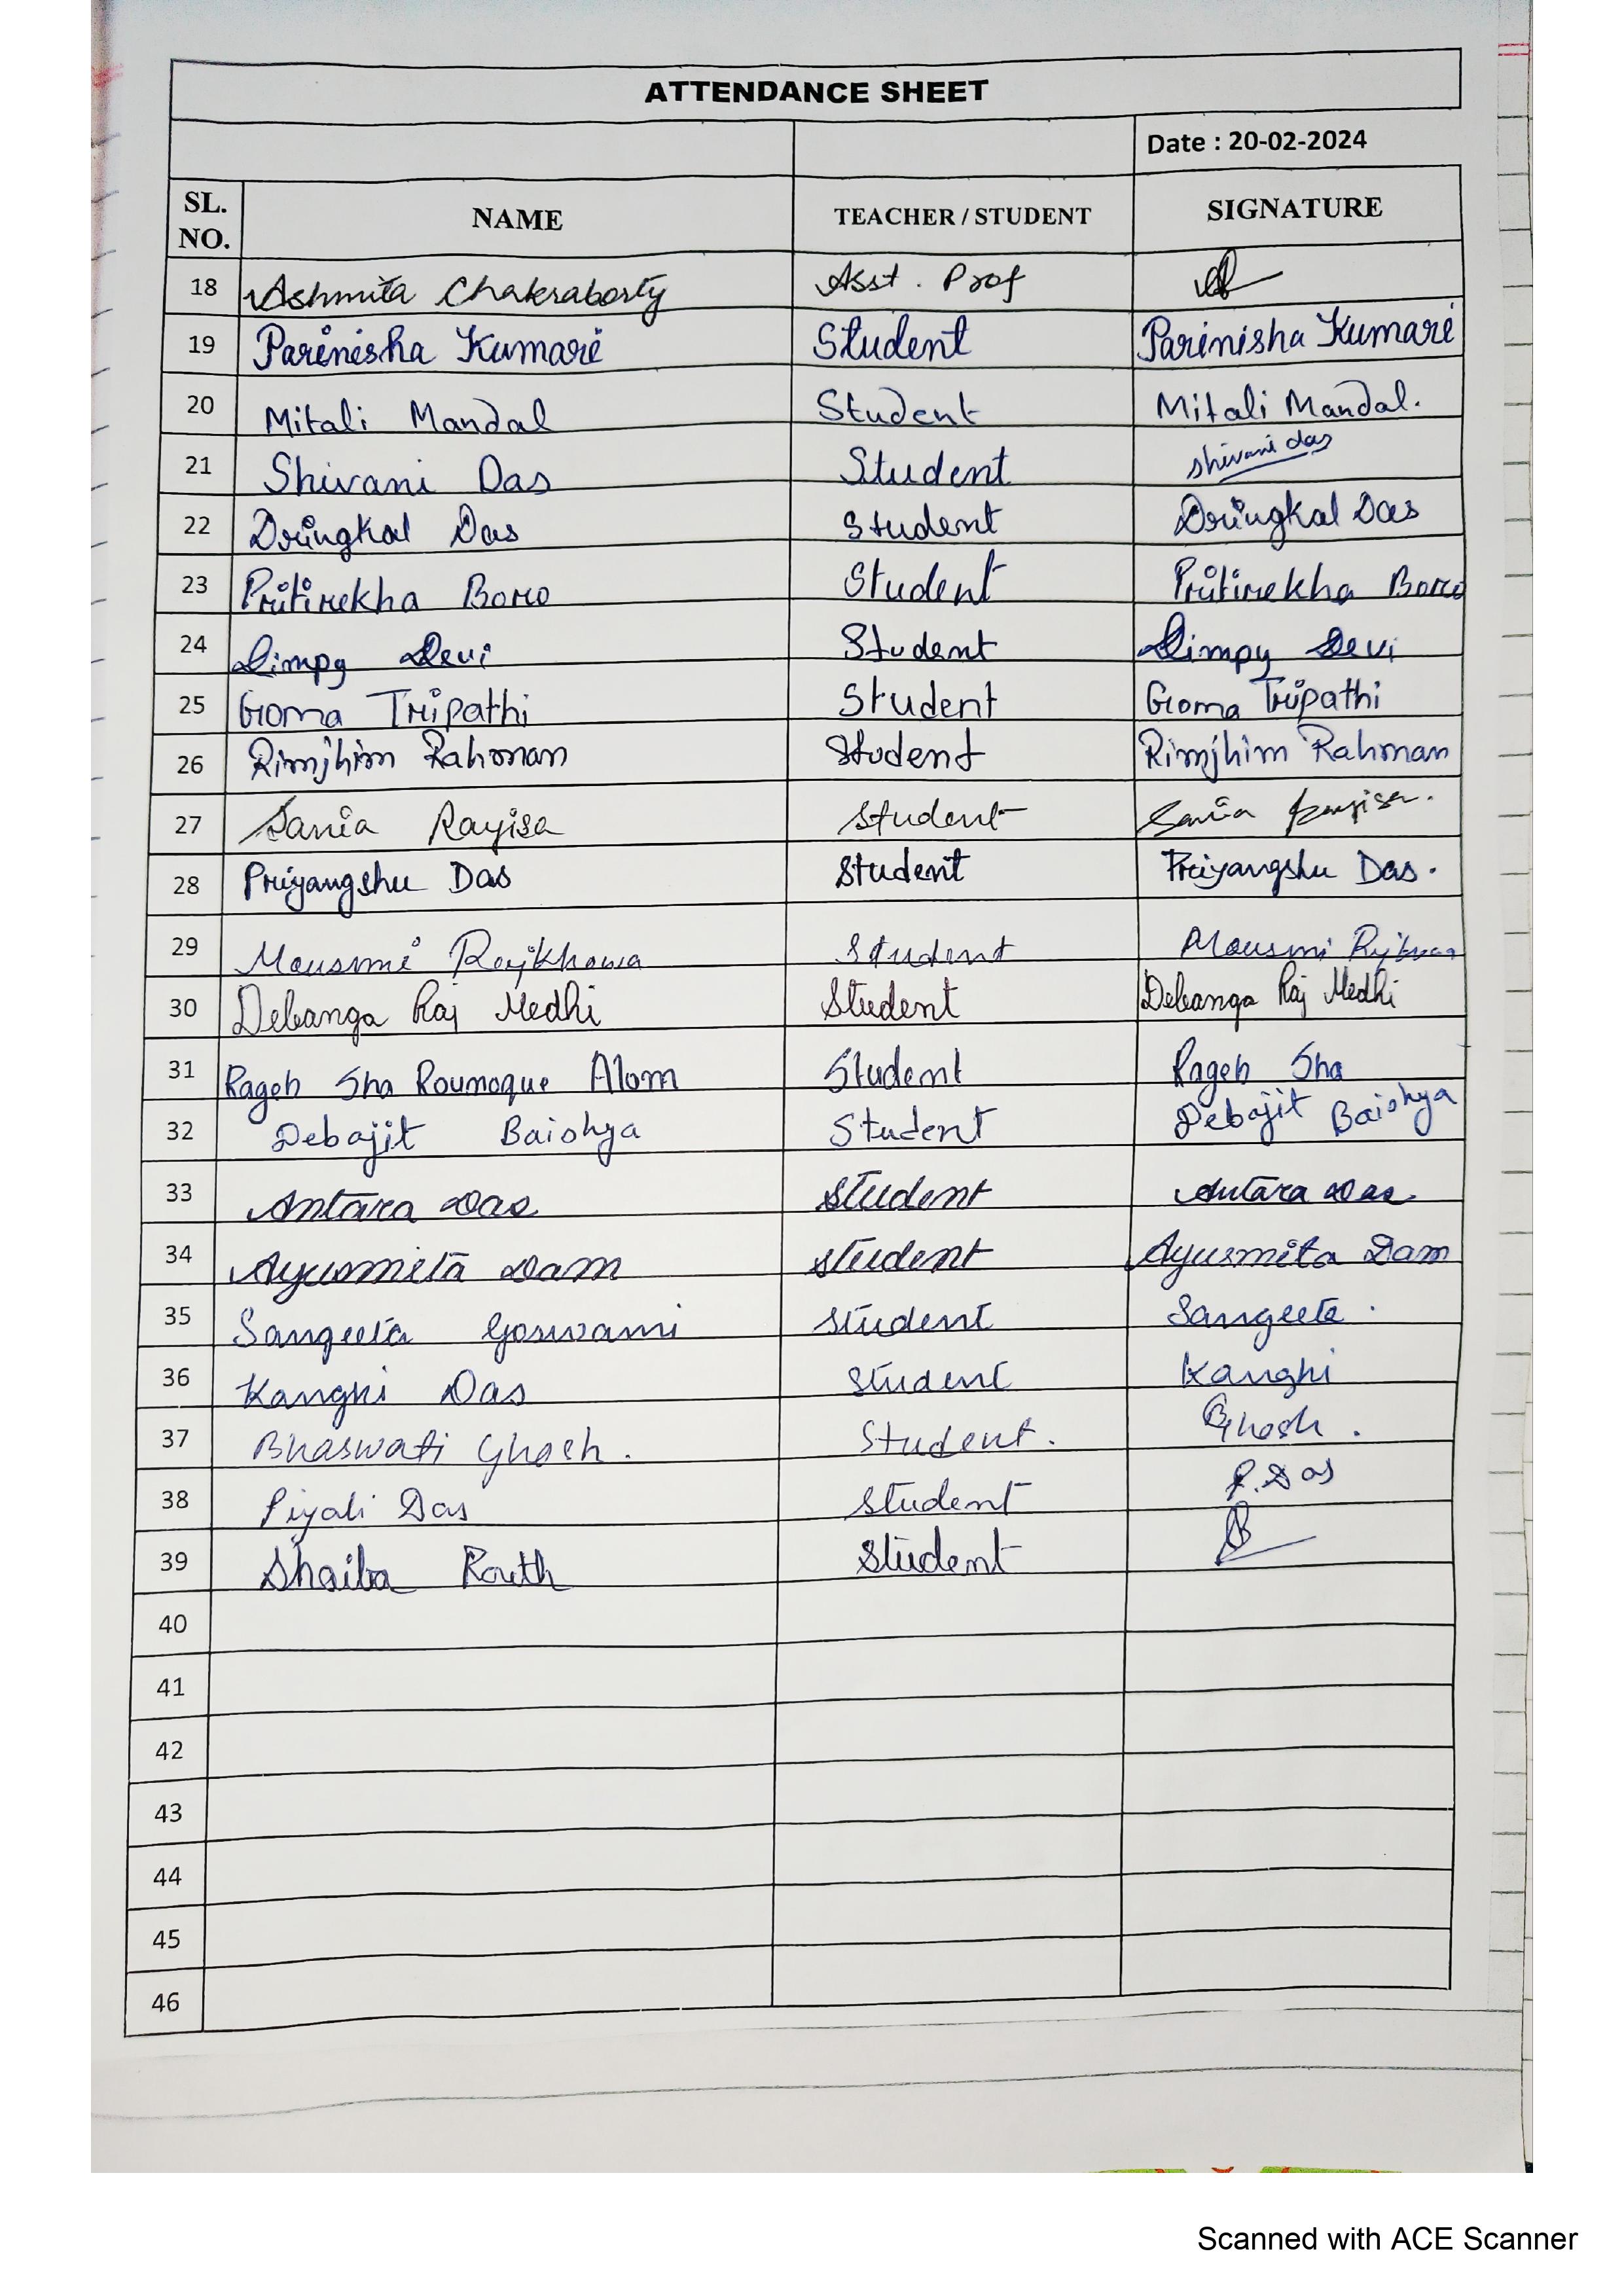 ATTENDANCE SHEET
Date : 20-02-2024
SL. NO. NAME TEACHER / STUDENT SIGNATURE
18 Ashmita Chakraborty Asst. Prof
19 Parinisha Kumari Student Parinisha Kumari
20 Mitali Mandal Student Mitali Mandal.
21 Shivani Das Student Shivani das
22 Dringkal Das Student Dringkal Das
23 Pritirekha Boro Student Pritirekha Boro
24 Dimpy Devi Student Dimpy Devi
25 Goma Tripathi Student Goma Tripathi
26 Rimjhim Rahman Student Rimjhim Rahman
27 Sania Rayisa Student Sania Rayisa.
28 Priyangshu Das Student Priyangshu Das.
29 Mousmi Rajkhowa Student Mousmi
30 Debanga Raj Medhi Student Debanga Raj Medhi
31 Rageb Sha Roumoque Alom Student Rageb Sha
32 Debajit Baishya Student Debajit Baishya
33 Antara Das Student Antara Das
34 Ayusmita Dam Student Ayusmita Dam
35 Sangeeta Goswami Student Sangeeta.
36 Kanghi Das Student Kanghi
37 Bhaswati Ghosh. Student. BGhosh.
38 Piyali Das Student P. Das
39 Shaiba Routh Student
40
41
42
43
44
45
46
Scanned with ACE Scanner